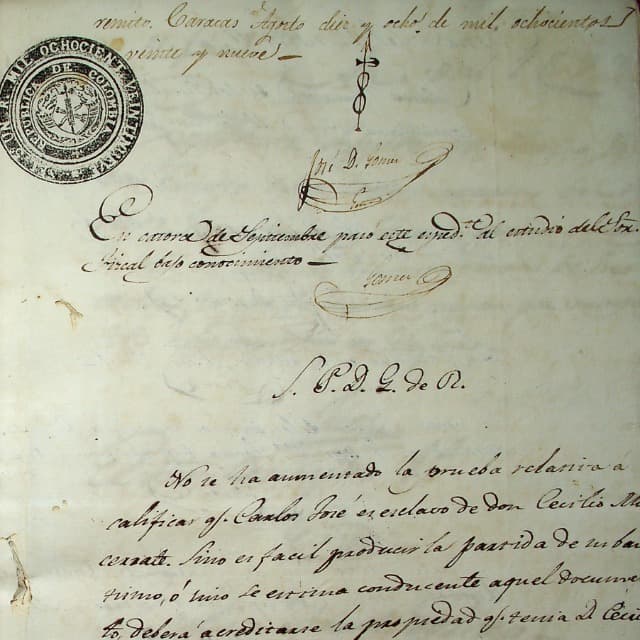 remito. Caracas Agosto diez y ocho de mil ochocientos
veinte y nueve –
REPUBLICA DE COLOMBIA
José D.
En catorce de Septiembre paso este exped.te al estudio del Sor.
Fiscal bajo conocimiento –
S. P. D. G. de R.
No se ha aumentado la prueba relativa á
calificar q.e Carlos José es esclavo de don Cecilio
cerrate. Sino es facil producir la partida de su bau
tismo, ó sino se estima conducente aquel documen
to, deberá acreditarse la propiedad q.e tenia D. Ceci